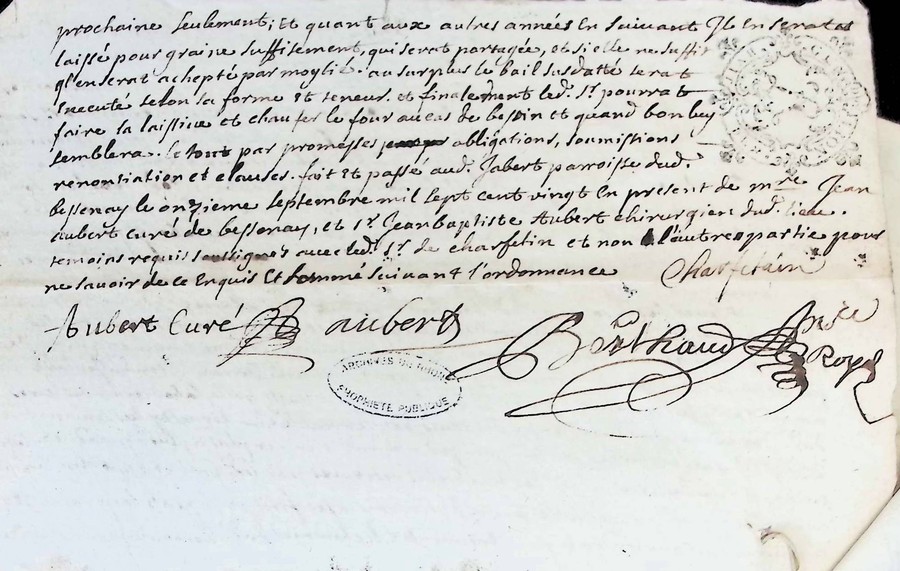 prochaine seulement; Et quant aux autres années En suivant Il En serat
laissé pour graine suffisement, qui serat partagée, et si elle ne suffit
Il en serat achepté par moytié. au surplus le bail susdatté serat
Executé selon sa forme Et teneur. et finalement led. Sr. pourrat
faire sa laissive et chaufer le four au cas de besoin et quand bon luy
semblera. le tout par promesses obligations, soumissions
renontiation et clauses. fait Et passé aud. Jabert parroisse dud.
bessenay le onzieme septembre mil sept cent vingt En present de mre Jean
aubert curé de bessenay, et Sr. Jean baptiste Aubert chirurgien dud. lieu.
temoins requis soussignés avec led. Sr. de charfetin et non l'autre partie pour
ne savoir de ce Enquis Et sommé suivant l'ordonnance
Charfetain
Aubert Curé aubert Berthaud nre Royal
ARCHIVES DU RHONE
PROPRIETE PUBLIQUE
GENERALITE